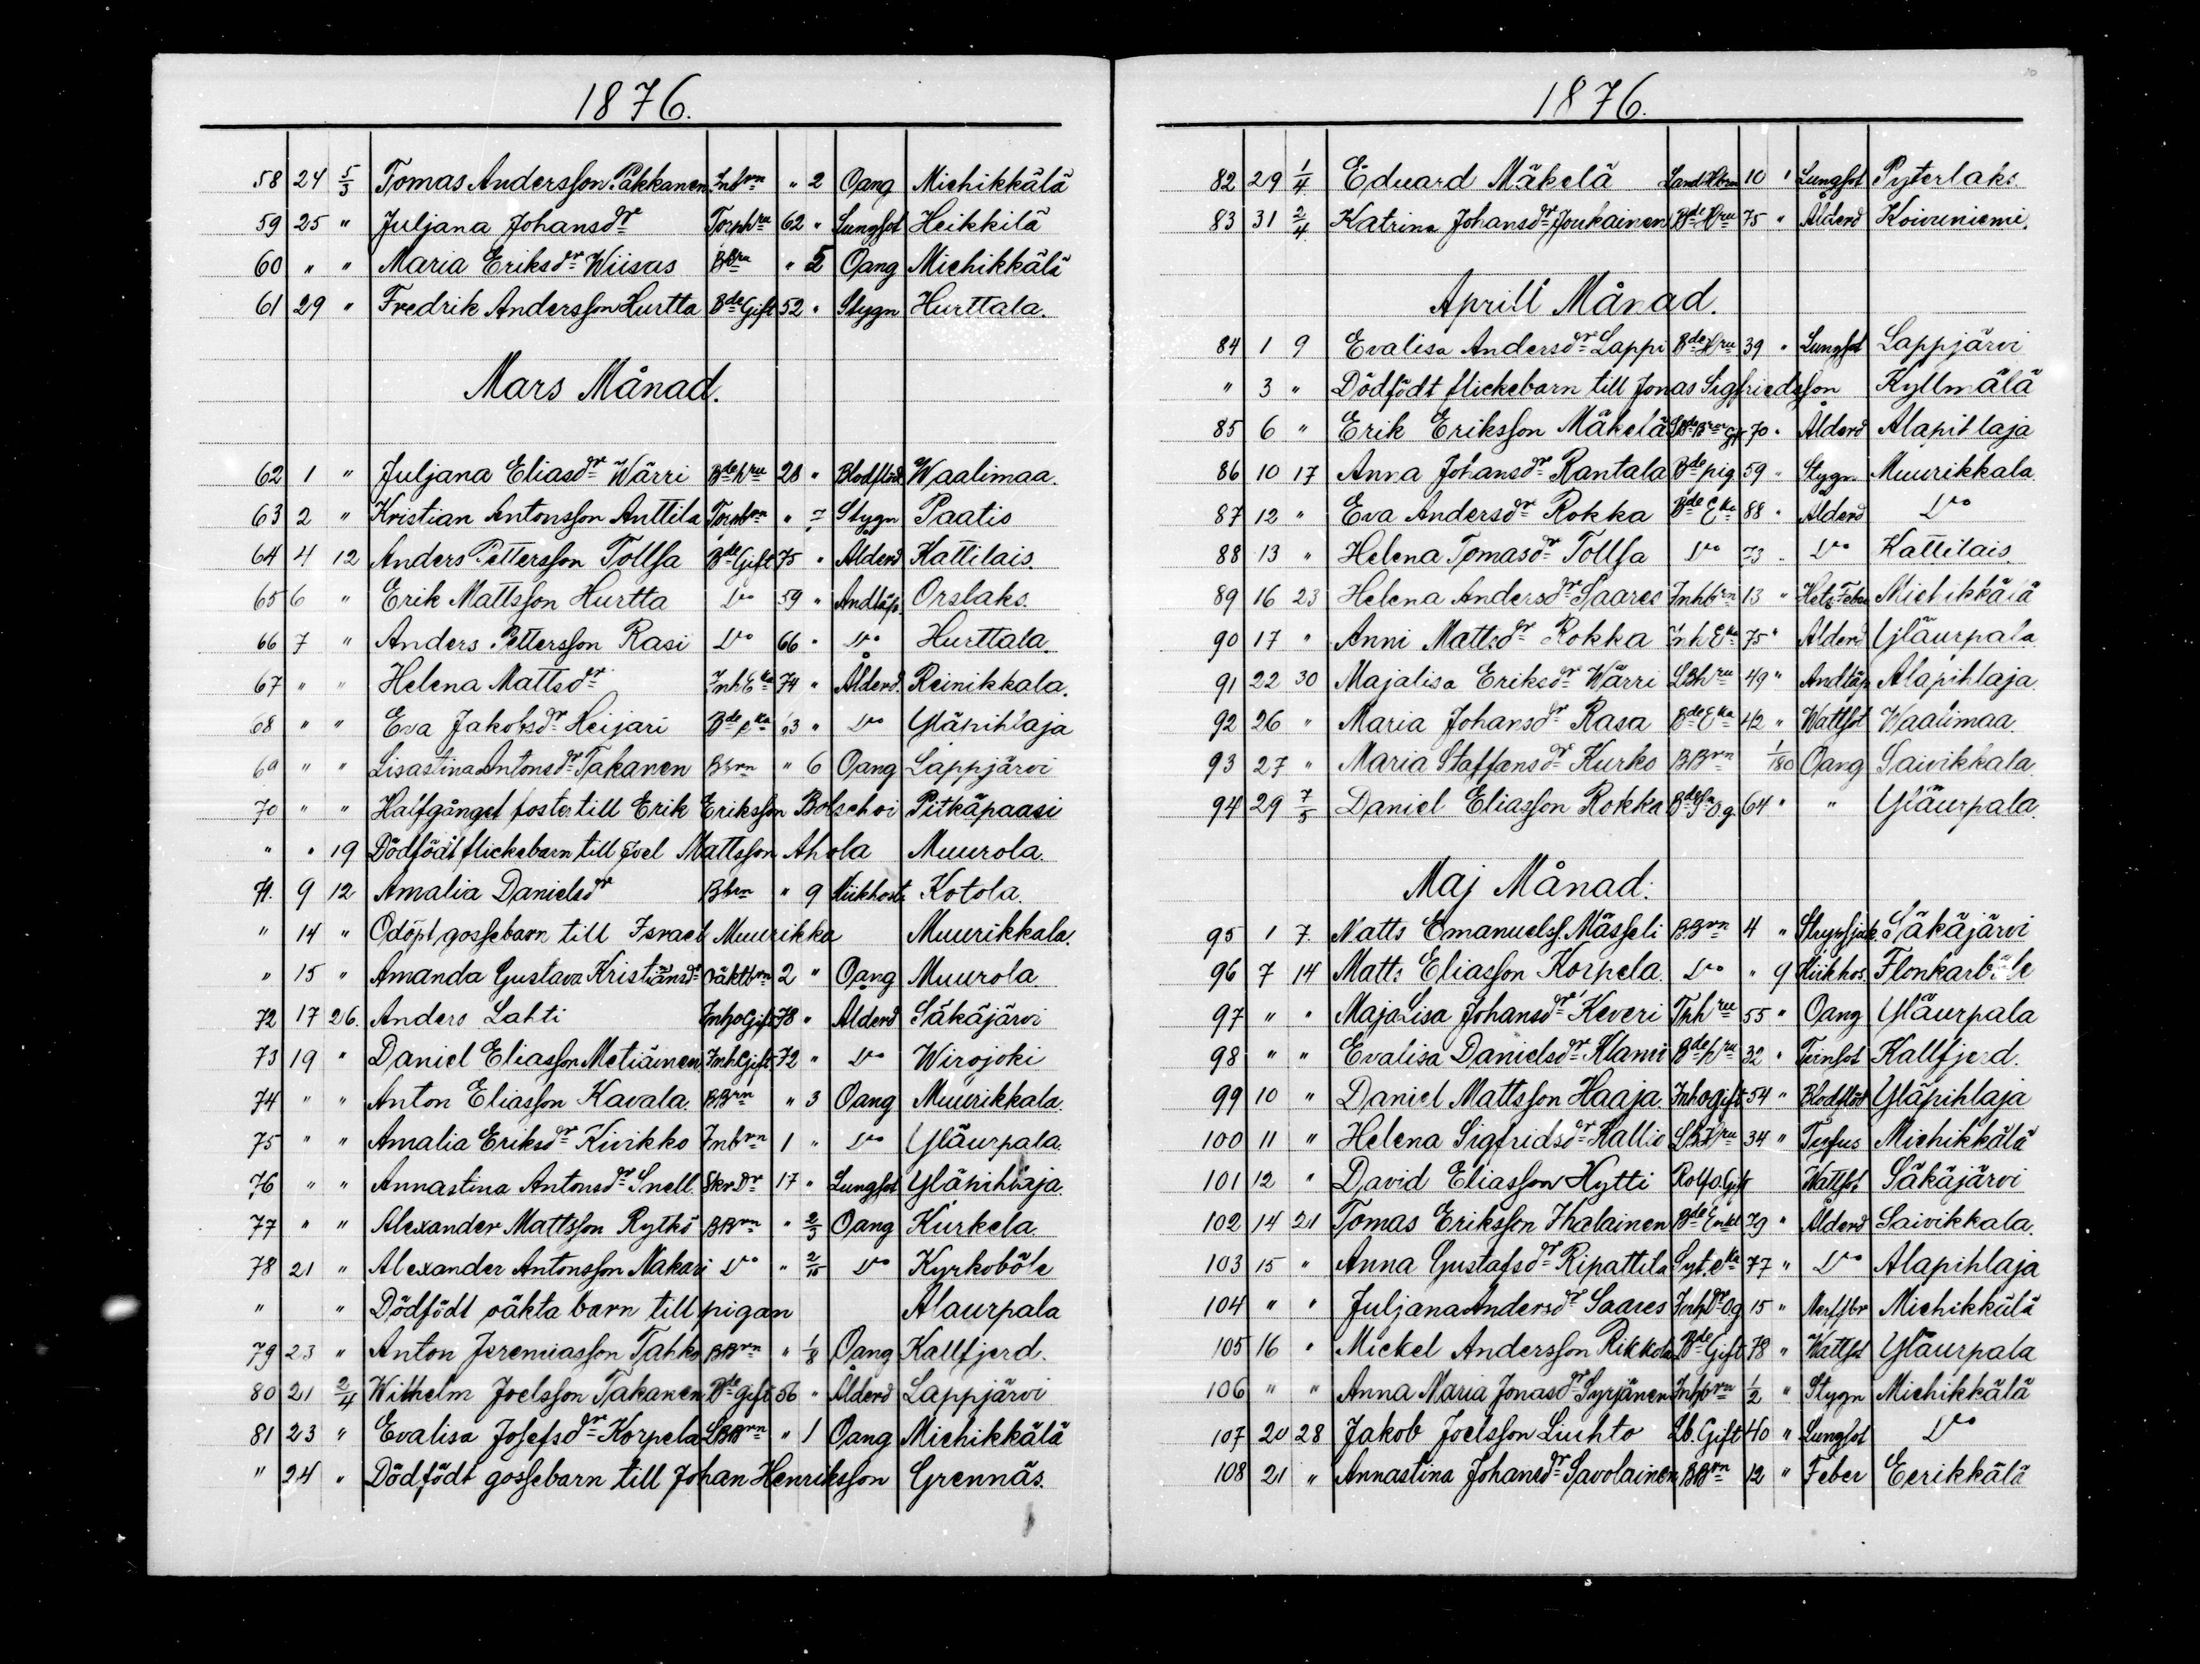 1876.
58 24 5/3 Tomas Andersson Pakkanen Inhbrn " 2 Oang Michikkälä
59 25 " Juljana Johansdr Torphru 62 " Lungsot Heikkilä
60 " " Maria Eriksdr Wiisas BBrn " 5 Oang Michikkälä
61 29 " Fredrik Andersson Hurtta Bde Gift 52 " Stygn Hurttala.
Mars Månad.
62 1 " Juljana Eliasdr Wärri Bde hru 28 " Blodflöd Waalimaa.
63 2 " Kristian Antonsson Anttila Torpbrn " 7 Stygn Paatis
64 4 12 Anders Pettersson Tollsa Bde Gift 75 " Ålderd Kattilais.
65 6 " Erik Mattsson Hurtta Do 59 " Andtäp. Orslaks.
66 7 " Anders Pettersson Rasi Do 66 " Do Hurttala.
67 " " Helena Mattsdr Inh Eka 74 " Ålderd. Reinikkala.
68 " " Eva Jakobsdr Heijari Bde eka 63 " Do Yläpihlaja
69 " " Lisastina Antonsdr Takanen BBrn " 6 Oang Lappjärvi
70 " " Halfgånget foster till Erik Eriksson Bolschoi Pitkäpaasi
" " 19 Dödfödt flickebarn till Joel Mattsson Ahola Muurola.
71. 9 12 Amalia Danielsdr Bbrn " 9 Kikhost. Kotola.
" 14 " Odöpt gossebarn till Israel Muurikka Muurikkala.
" 15 " Amanda Gustava Kristiansdr oäktbrn 2 " Oang Muurola.
72 17 26. Anders Lahti InhoGift 78 " Ålderd Säkäjärvi
73 19 " Daniel Eliasson Metiäinen InhGift 72 " Do Wirojoki
74 " " Anton Eliasson Kavala. BBrn " 3 Oang Muurikkala.
75 " " Amalia Eriksdr Kivikko Inhbrn 1 " Do Yläurpala.
76 " " Annastina Antonsdr Snell Skr Dr 17 " Lungsot Yläpihlaja.
77 " " Alexander Mattsson Rytkö BBrn " 2/3 Oang Kurkela.
78 21 " Alexander Antonsson Nakari Do " 2/15 Do Kyrkoböle
" " Dödfödt oäkta barn till pigan Alaurpala
79 23 " Anton Jeremiasson Tahko BBrn " 1/8 Oang Kallfjerd.
80 21 2/4 Wilhelm Joelsson Takanen Bde gift 56 " Ålderd Lappjärvi
81 23 " Evalisa Josefsdr Korpela LBBrn " 1 Oang Michikkälä
" 24 " Dödfödt gossebarn till Johan Henriksson Grennäs.
1876.
82 29 1/4 Eduard Mäkelä 10 " Lungsot Pyterlaks.
83 31 2/4 Katrina Johansdr Joukainen Bde Hru 75 " Ålderd Koivuniemi.
Aprill Månad.
84 1 9 Evalisa Andersdr Lappi Bde Hru 39 " Lungsot Lappjärvi
" 3 " Dödfödt flickebarn till Jonas Sigfriedsson Kyllmälä
85 6 " Erik Eriksson Mäkelä 70 " Ålderd Alapihlaja
86 10 17 Anna Johansdr Rantala Bde pig 59 " Stygn. Muurikkala
87 12 " Eva Andersdr Rokka Bde Eka 88 " Ålderd Do
88 13 " Helena Tomasdr Tollsa Do 73 " Do Kattilais.
89 16 23 Helena Andersdr Saares Inhbrn 13 " Hets Feber Michikkälä
90 17 " Anni Mattsdr Rokka Inh Eka 75 " Ålderd Yläurpala
91 22 30 Majalisa Eriksdr Wärri LBhru 49 " Andtäp Alapihlaja.
92 26 " Maria Johansdr Rasa Bde Eka 42 " Wattsot Waalimaa.
93 27 " Maria Staffansdr Kurko BBrn 1/180 Oang Saivikkala.
94 29 7/5 Daniel Eliasson Rokka Bde Sn Og. 64 " " Yläurpala.
Maj Månad.
95 1 7. Matts Emanuelss. Mässeli B.Brn 4 " Strypsjuk. Säkäjärvi
96 7 14 Matts Eliasson Korpela. Do " 9 Kikhos. Flonkarböle
97 " " MajaLisa Johansdr Keveri Tphru 55 " Oang Yläurpala
98 " " Evalisa Danielsdr Klami Bde hru 32 " Tvinsot Kallfjerd.
99 10 " Daniel Mattsson Haaja. Inhogift 54 " Blodflöd Yläpihlaja
100 11 " Helena Sigfridsdr Kallio LBHru 34 " Tyfus Michikkälä
101 12 " David Eliasson Hytti RotfoGift Wattsot. Säkäjärvi
102 14 21 Tomas Eriksson Ihalainen Bde Enkl 79 " Ålderd Saivikkala.
103 15 " Anna Gustafsdr Ripattila Syt. eka 77 " Do Alapihlaja
104 " " Juljana Andersdr Saares InhDr Og 15 " Nerffbr Michikkälä
105 16 " Mickel Andersson Rikkola Bde Gift 78 " Wattsot Yläurpala
106 " " Anna Maria Jonasdr Syrjänen Inhbrn 1/2 " Stygn Michikkälä
107 20 28 Jakob Joelsson Liuhto Lb. Gift 40 " Lungsot Do
108 21 " Annastina Johansdr Savolainen BBrn 12 " Feber Eerikkälä